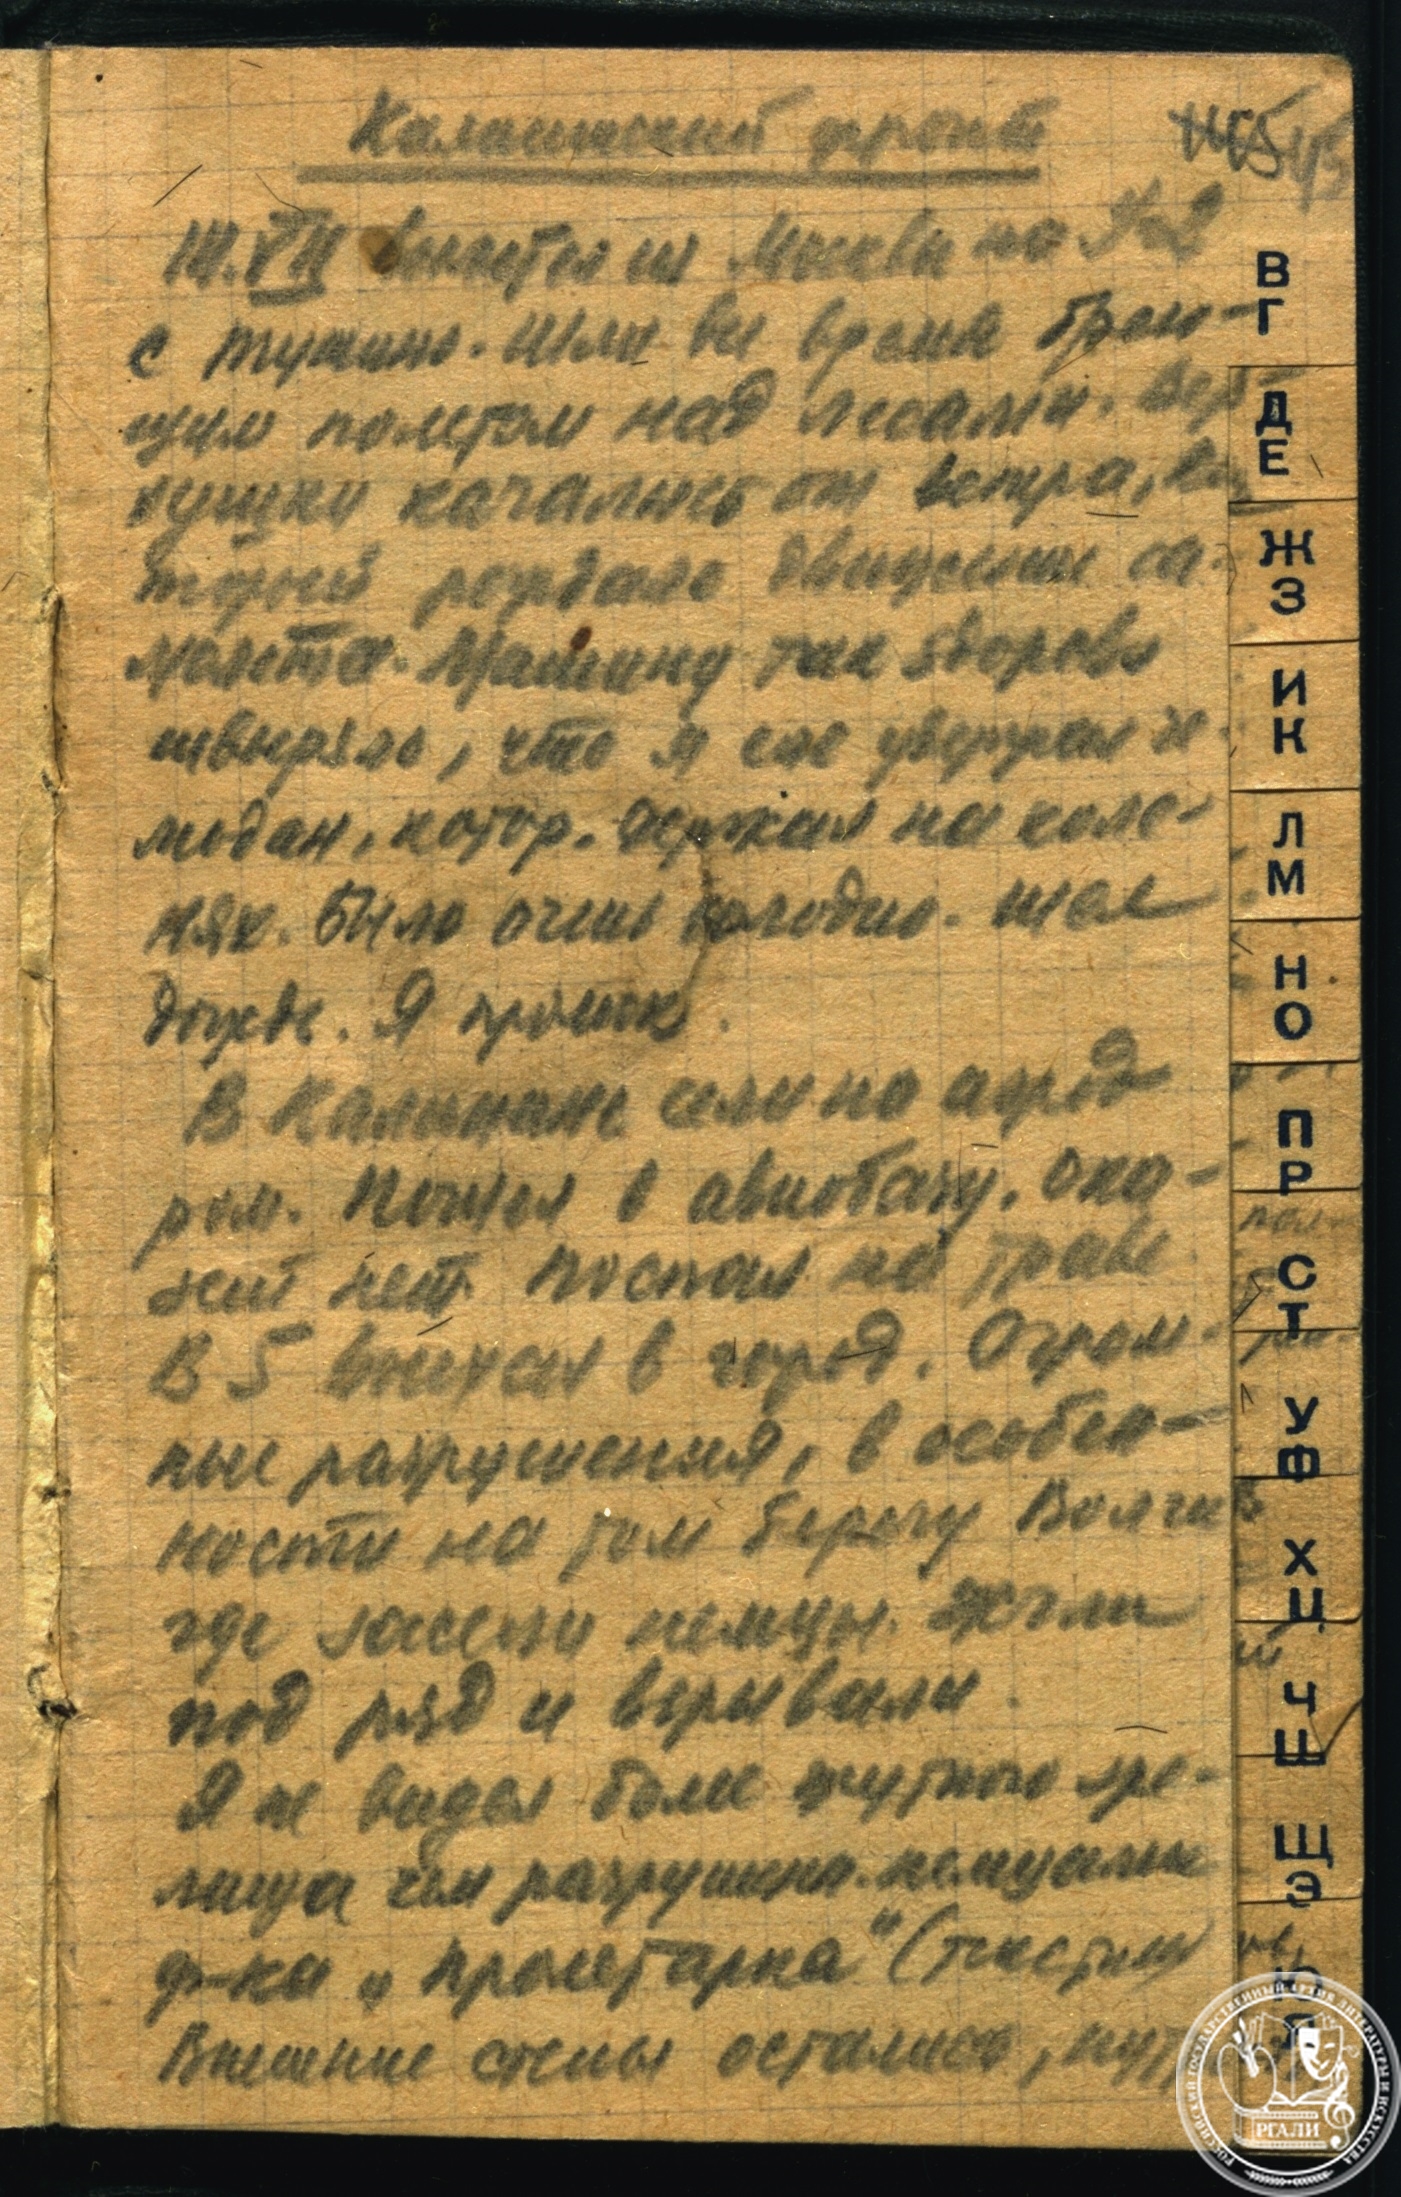 Калининский фронт
45
VII вылетел из Москвы на У-2
с Тушино. Шли все время брею-
щим полетом над лесами. Вер-
хушки качались от ветра, ко
торый рождало движение са-
молета. Машину так здорово
швыряло, что я еле удержал че-
модан, котор. держал на коле-
нях. Было очень холодно. Шел
дождь. Я промок.
В Калинине сели на аэрод
ром. Пошел в авиобазу. Ока-
зий нет. Поспал на траве
В 5 двинулся в город. Огром-
ные разрушения, в особен-
ности на том берегу Волги
где засели немцы. Жгли
под ряд и взрывали.
Я не видел более жуткого зре-
лища чем разрушен. немцами
ф-ка „Пролетарка" (текстил
Внешние стены остались, нут
В
Г
Д
Е
Ж
З
И
К
Л
М
Н
О
П
Р
С
Т
У
Ф
Х
Ц
Ч
Ш
Щ
Э
Ю
Я
РОССИЙСКИЙ ГОСУДАРСТВЕННЫЙ АРХИВ ЛИТЕРАТУРЫ И ИСКУССТВА
РГАЛИ